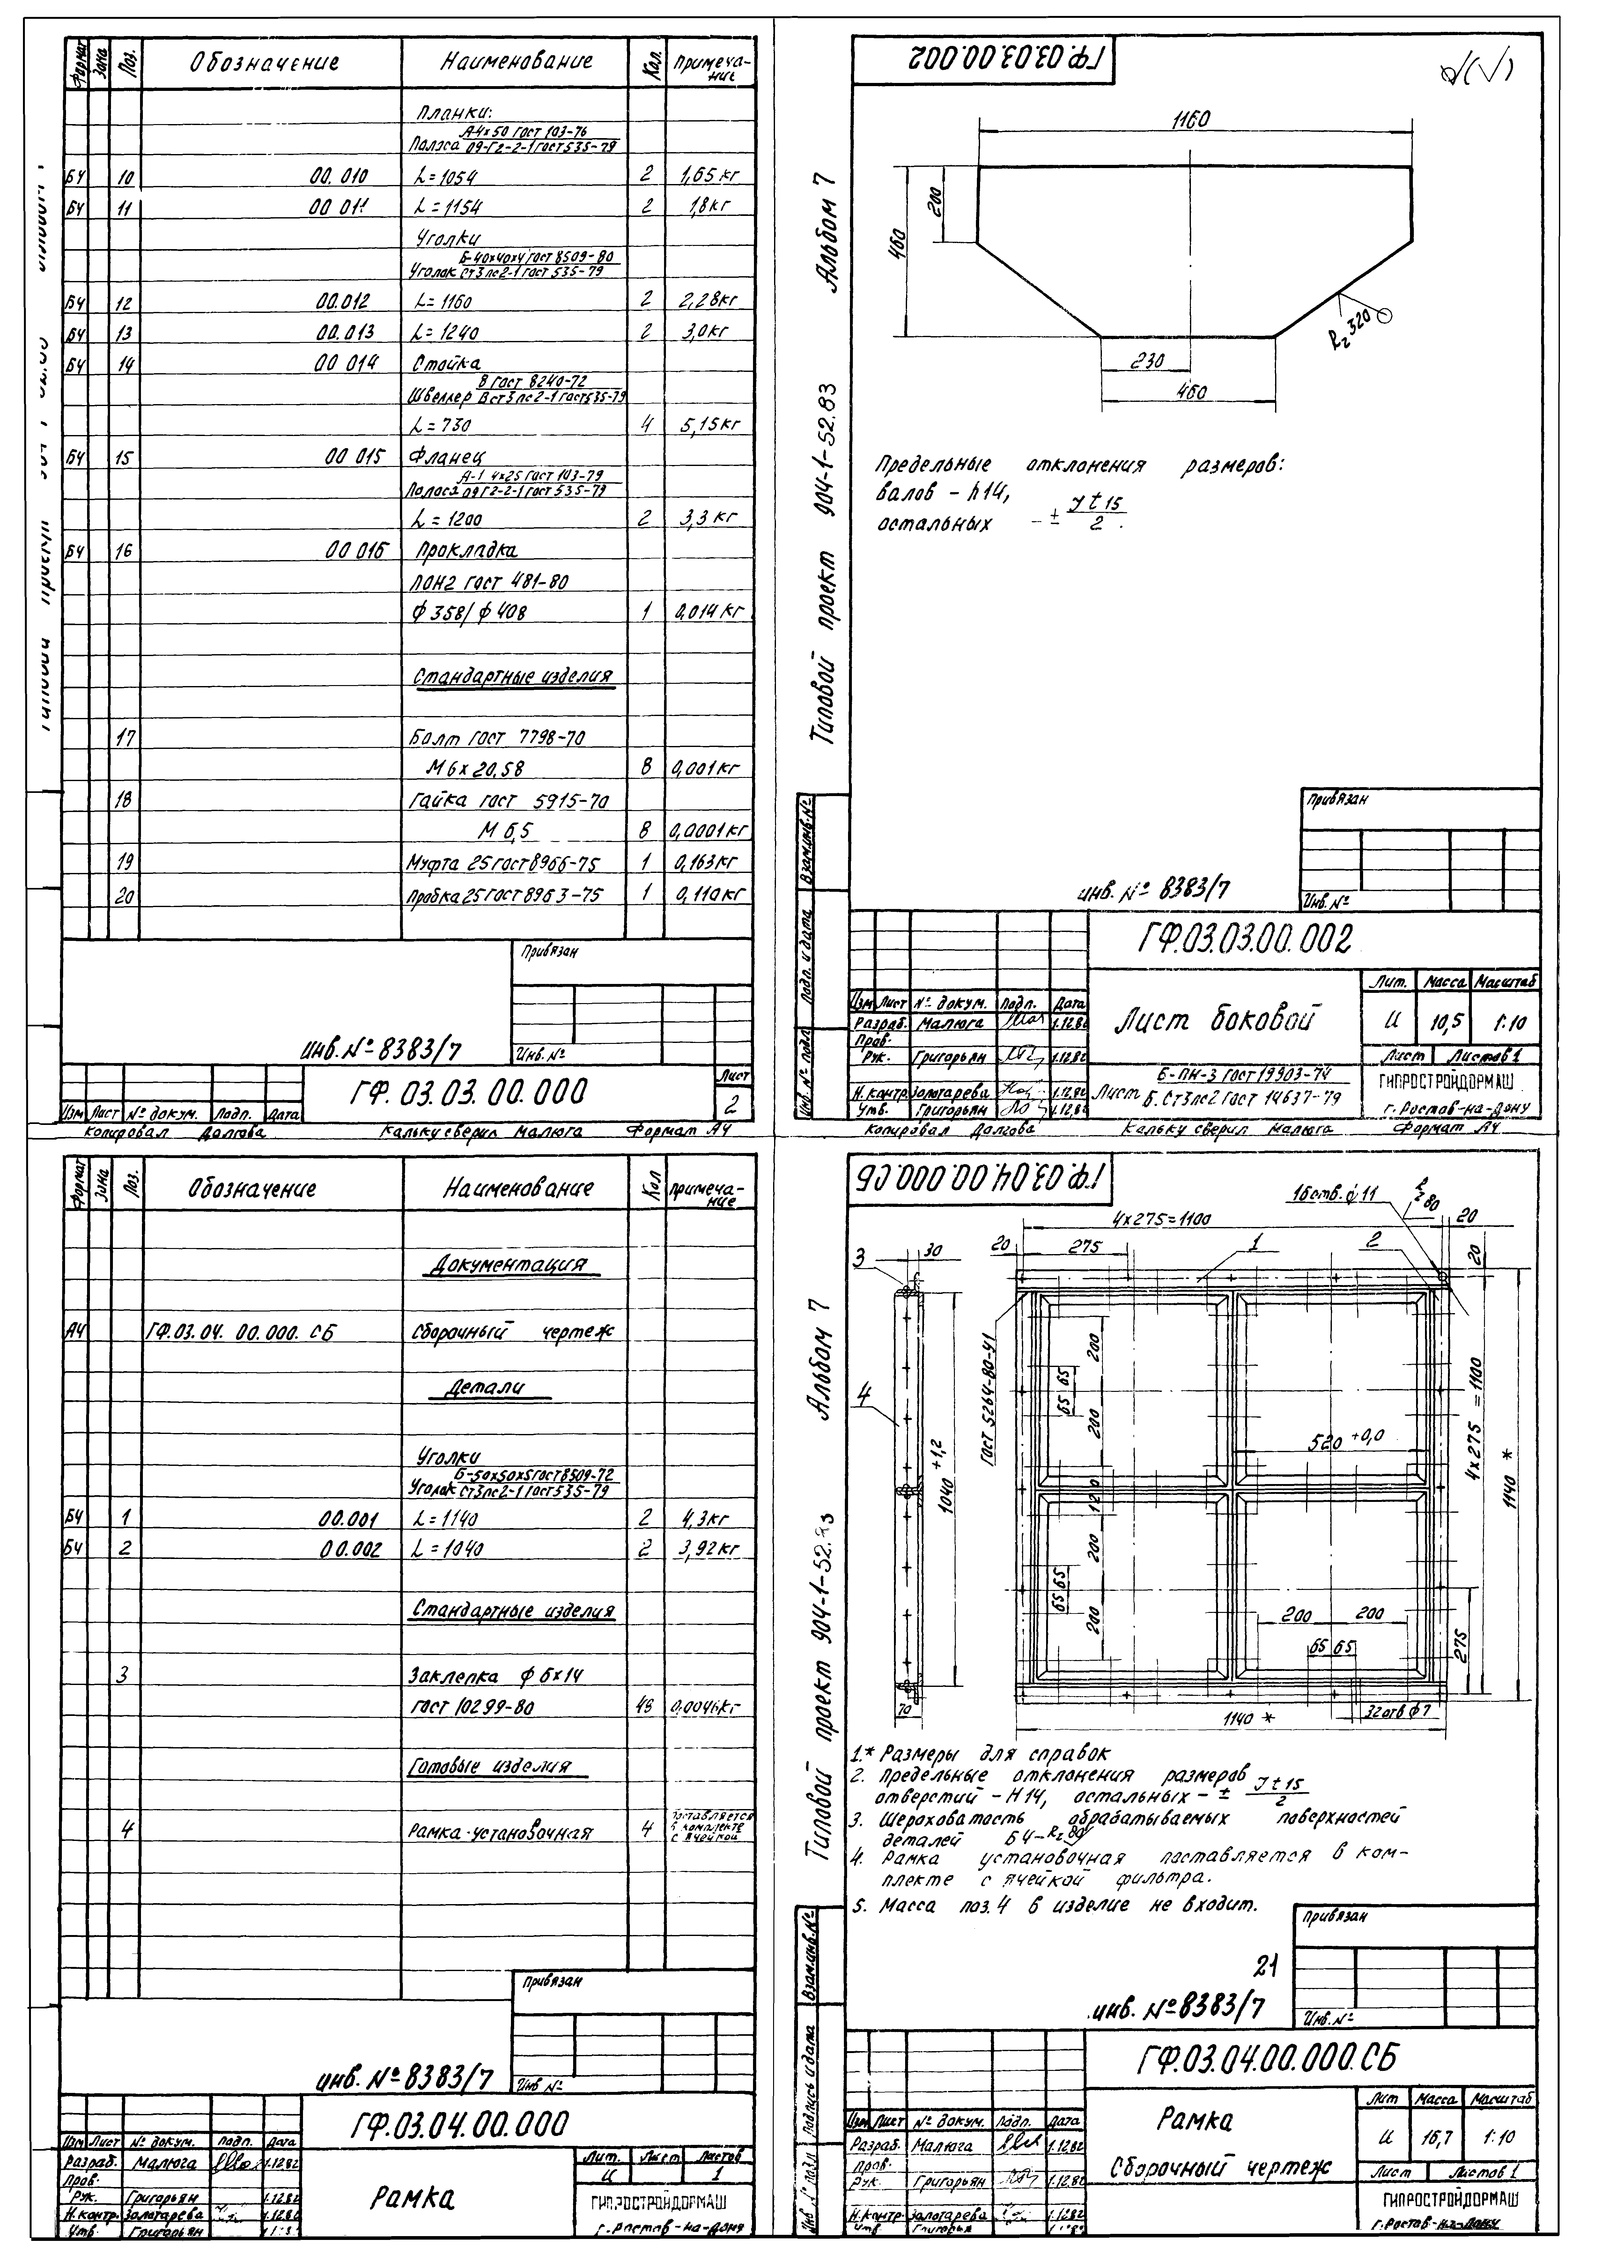 Формат Зона Поз. Обозначение Наименование Кол. Примеча-
ние
Планки:
Полоса А-4×50 ГОСТ 103-76
09-Г2-2-1 ГОСТ 535-79
БЧ 10 00.010 L=1054 2 1,65 кг
БЧ 11 00 011 L=1154 2 1,8 кг
Уголки
Уголок Б-40×40×4 ГОСТ 8509-80
Ст3пс2-1 ГОСТ 535-79
БЧ 12 00.012 L=1160 2 2,28 кг
БЧ 13 00.013 L=1240 2 3,0 кг
БЧ 14 00 014 Стойка
Швеллер 8 ГОСТ 8240-72
Вст3пс2-1 ГОСТ 535-79
L=730 4 5,15 кг
БЧ 15 00 015 Фланец
Полоса А-1 4×25 ГОСТ 103-79
09Г2-2-1 ГОСТ 535-79
L=1200 2 3,3 кг
БЧ 16 00 016 Прокладка
ПОН2 ГОСТ 481-80
ф 358/ ф 408 1 0,014 кг
Стандартные изделия
17 Болт ГОСТ 7798-70
М6×20.58 8 0,001 кг
18 Гайка ГОСТ 5915-70
М 6,5 8 0,0001 кг
19 Муфта 25 ГОСТ 8966-75 1 0,163 кг
20 Пробка 25 ГОСТ 8963-75 1 0,110 кг
Привязан
инв. № 8383/7 Инв. №
ГФ. 03.03.00.000 Лист
2
Изм Лист № докум. Подп. Дата
Копировал Долгова Кальку сверил Малюга Формат А4
ГФ.03.03.00.002
Типовой проект 904-1-52.83 Альбом 7
1160
460
200
Rz 320
230
460
Предельные отклонения размеров:
валов - h14,
остальных - ± It15
2
Привязан
инв. № 8383/7 Инв. №
Взам.инв.№
Подп. и дата
Инв. № подл.
ГФ.03.03.00.002
Лист боковой
Лит. Масса Масштаб
И 10,5 1:10
Лист Листов 1
Изм Лист № докум. Подп. Дата
Разраб. Малюга 1.12.82
Пров.
Рук. Григорьян 1.12.82
Н.контр. Золотарева 1.12.82
Утв. Григорьян 1.12.82
Лист Б-ПН-3 ГОСТ 19903-74
Б.Ст3пс2 ГОСТ 14637-79
ГИПРОСТРОЙДОРМАШ
г. Ростов-на-Дону
Копировал Долгова Кальку сверил Малюга Формат А4
Формат Зона Поз. Обозначение Наименование Кол Примеча-
ние
Документация
А4 ГФ.03.04.00.000.СБ Сборочный чертеж
Детали
Уголки
Уголок Б-50×50×5 ГОСТ 8509-72
Ст3пс2-1 ГОСТ 535-79
БЧ 1 00.001 L=1140 2 4,3 кг
БЧ 2 00.002 L=1040 2 3,92 кг
Стандартные изделия
3 Заклепка ф 6×14
ГОСТ 10299-80 48 0,0046 кг
Готовые изделия
4 Рамка установочная 4 поставляется
в комплекте
с ячейкой
Привязан
инв. № 8383/7 Инв №
ГФ.03.04.00.000
Изм Лист № докум. Подп. Дата
Разраб. Малюга 1.12.82
Пров.
Рук. Григорьян 1.12.82
Н.контр. Золотарева 1.12.82
Утв. Григорьян
Рамка
Лит. Лист Листов
И 1
ГИПРОСТРОЙДОРМАШ
г. Ростов-на-Дону
ГФ.03.04.00.000.СБ
Типовой проект 904-1-52.83 Альбом 7
16 отв. ф 11
Rz 80
4×275=1100
20
20
275
1
2
20
3
30
4
1040 +1,2
70
ГОСТ 5264-80-У1
200
65 65
200
120
200
65 65
200
520 +0,0
200 200
65 65
4×275 = 1100
1140 *
275
32 отв ф 7
1140 *
1.* Размеры для справок
2. Предельные отклонения размеров
отверстий - Н14, остальных - ± It15
2
3. Шероховатость обрабатываемых поверхностей
деталей БЧ - Rz 80
4. Рамка установочная поставляется в ком-
плекте с ячейкой фильтра.
5. Масса поз. 4 в изделие не входит.
Привязан
21
инв. № 8383/7 Инв. №
Взам.инв.№
Подпись и дата
Инв № подл
ГФ.03.04.00.000.СБ
Рамка
Сборочный чертеж
Лит Масса Масштаб
И 16,7 1:10
Лист Листов 1
Изм Лист № докум. Подп. Дата
Разраб. Малюга 1.12.82
Пров.
Рук. Григорьян 1.12.82
Н.контр. Золотарева 1.12.82
Утв Григорьян
ГИПРОСТРОЙДОРМАШ
г. Ростов-на-Дону